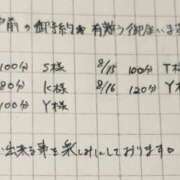 前の御予約 有難う御座います
100分 S様 8/15 100分 T様
80分 K様 8/16 120分 Y様
100分 Y様
出来る事を楽しみにしております。